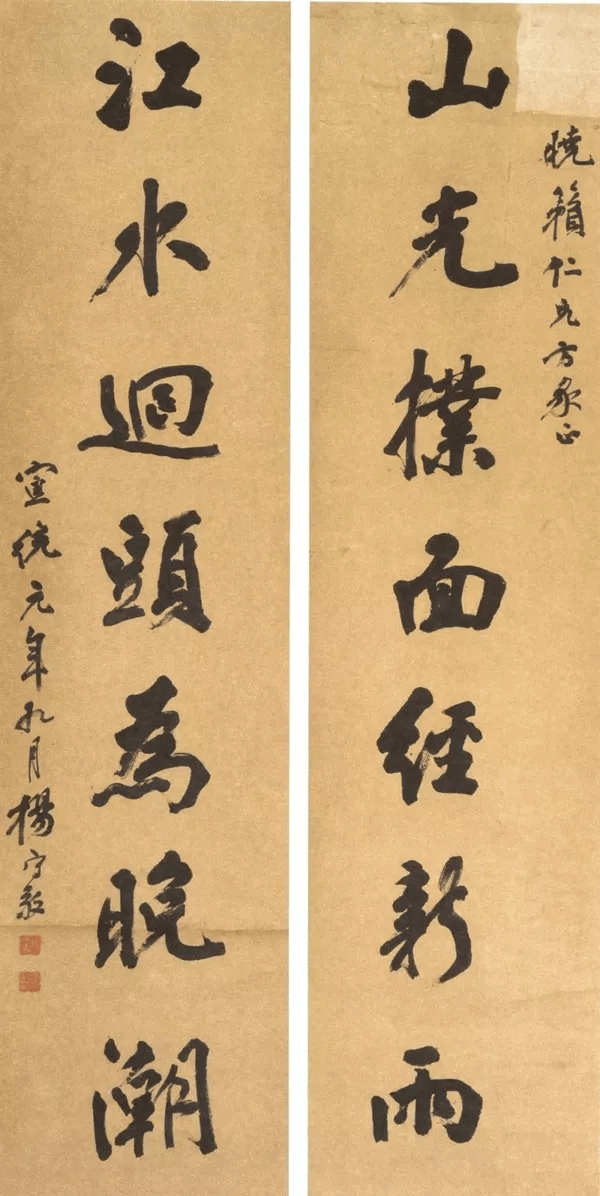 曉籟仁兄方家正
山光撲面經新雨
江水迴頭為晚潮
宣統元年九月楊守敬